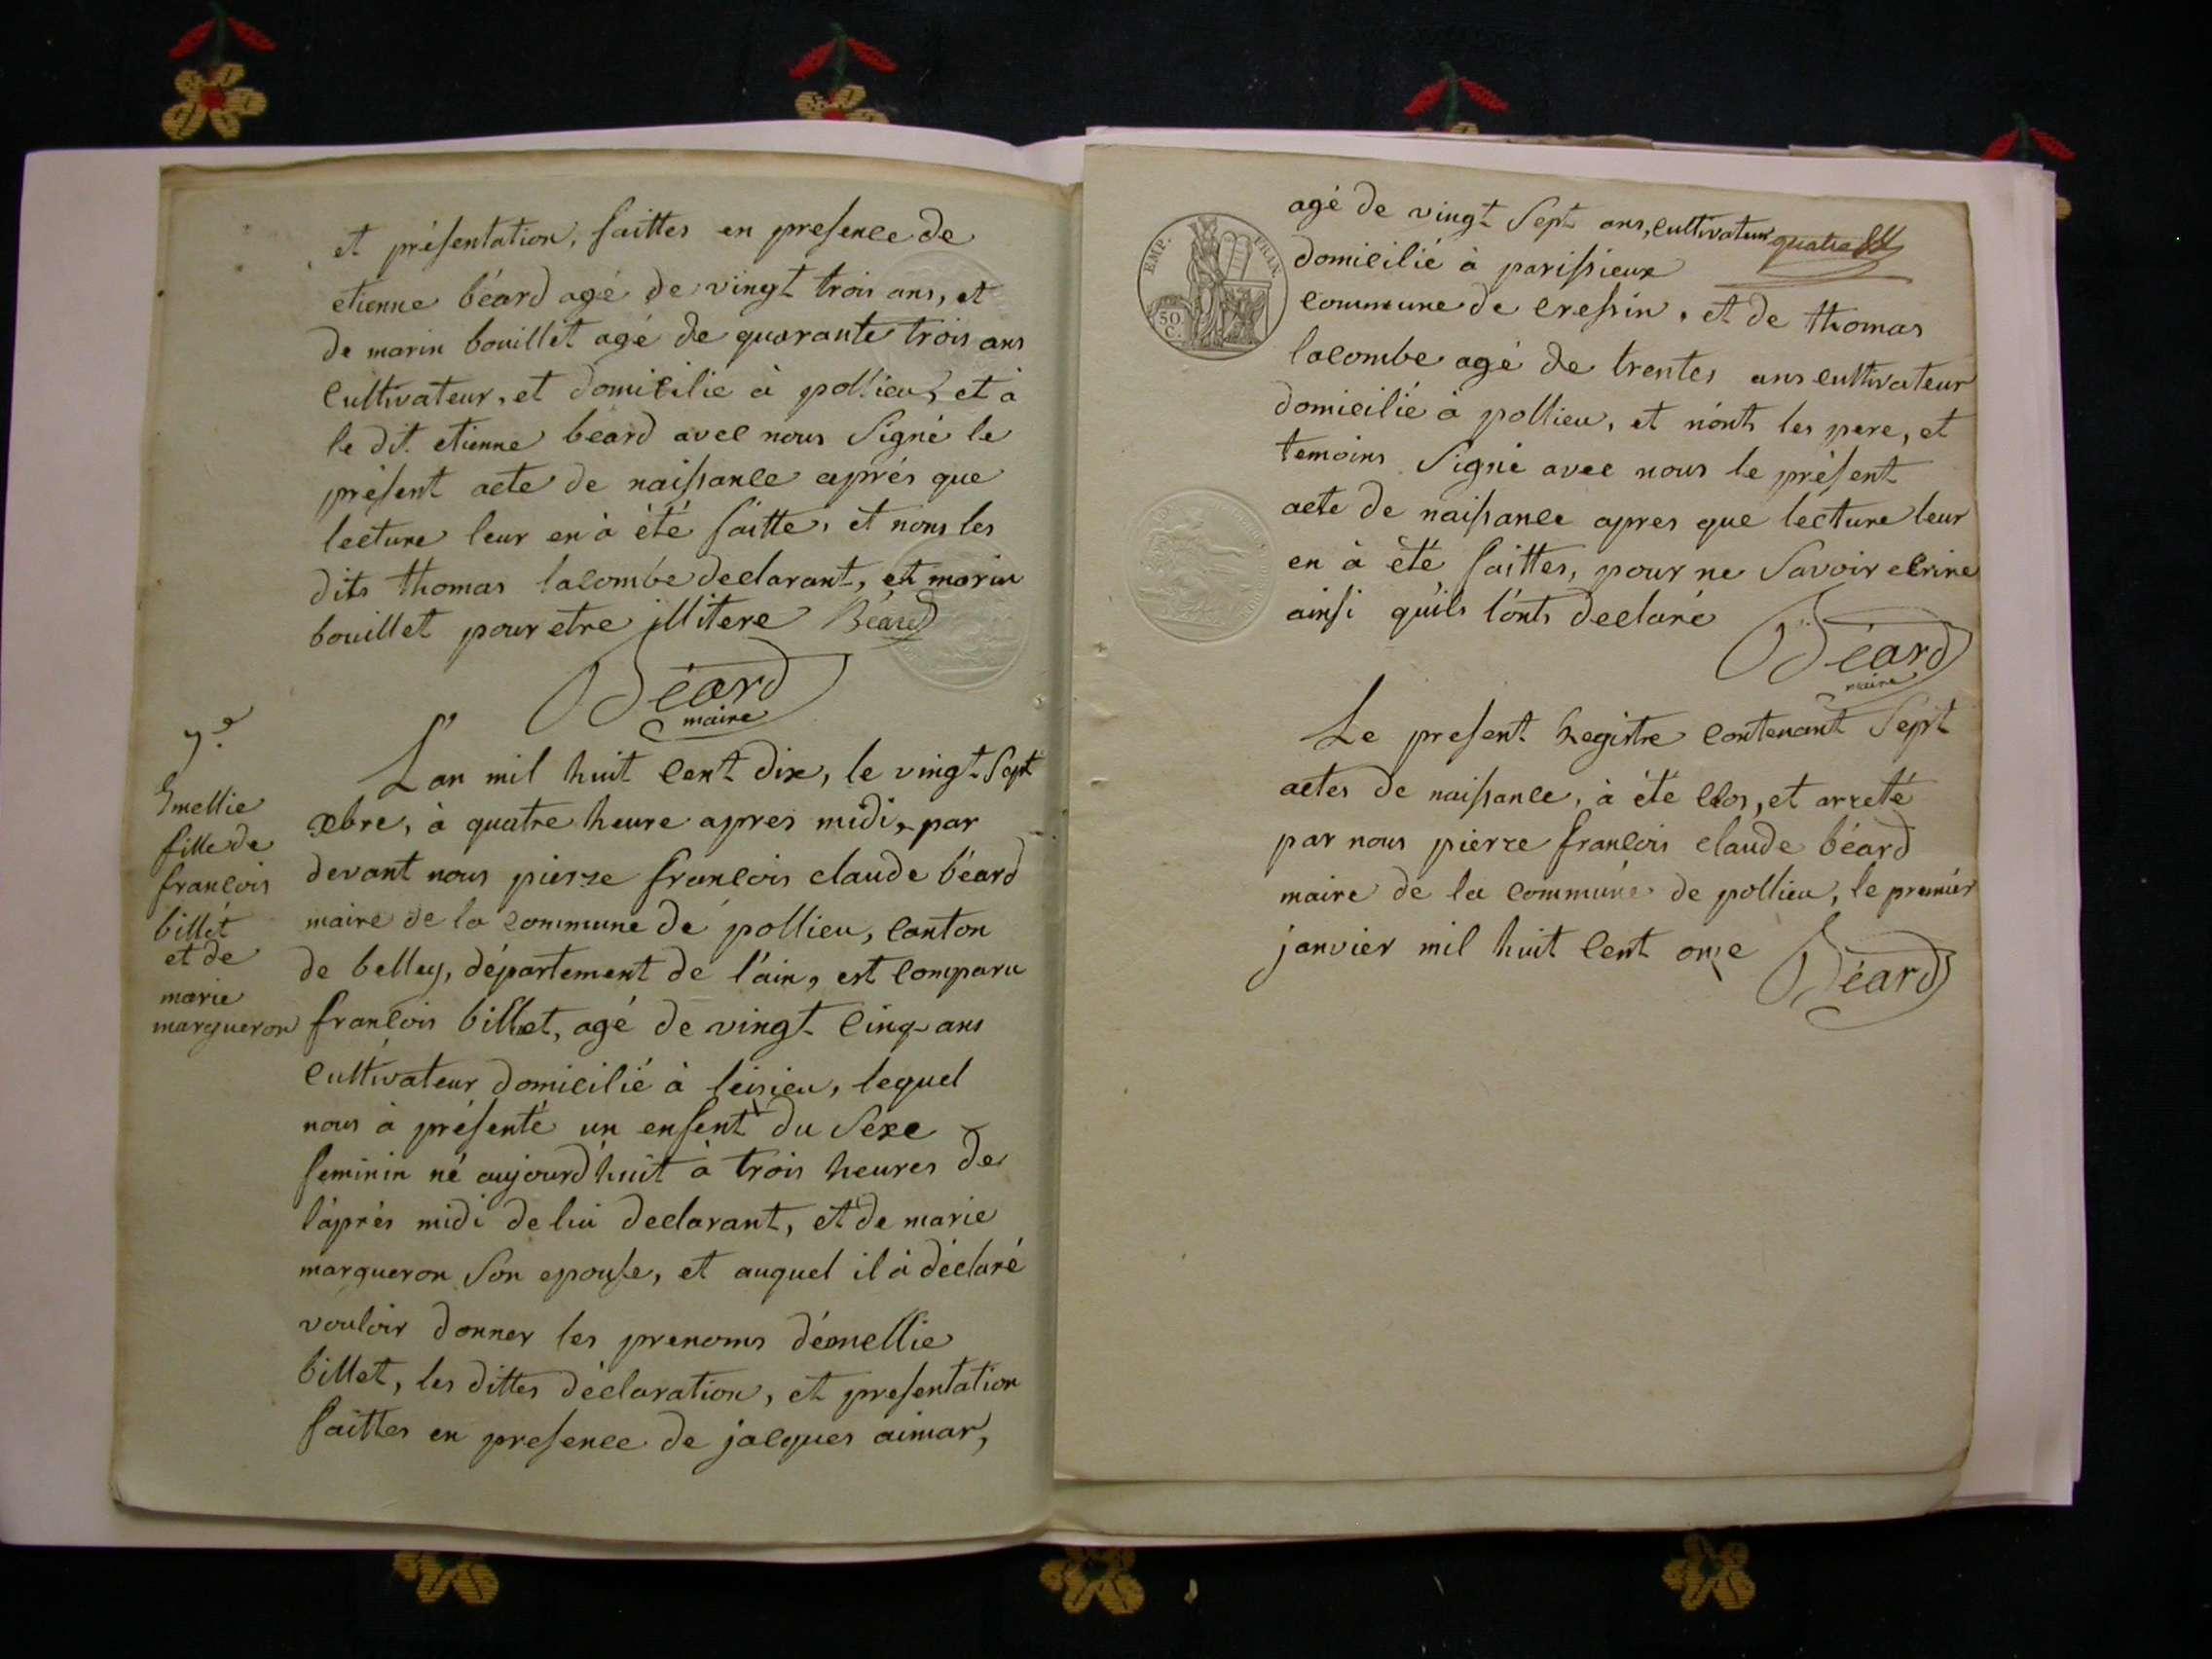 et présentation, faittes en presence de
etienne béard agé de vingt trois ans, et
de marin bouillet agé de quarante trois ans
cultivateur, et domicilie à pollieu, et à
le dt. etienne béard avec nous signé le
présent acte de naissance aprés que
lecture leur en à été faitte, et nons les
dits thomas lacombe declarant, et marin
bouillet pour etre illitere Béard
Béard
maire
7e.
Emellie
fille de
francois
billet
et de
marie
margueron
L'an mil huit cent dix, le vingt sept
xbre, à quatre heure apres midi, par
devant nous pierre francois claude béard
maire de la commune de pollieu, canton
de belley, département de l'ain, est comparu
francois billet, agé de vingt cinq ans
cultivateur domicilié à leisieu, lequel
nous à présenté un enfent du séxe
feminin né aujourd'huit à trois heures de
l'aprés midi de lui declarant, et de marie
margueron son epouse, et auquel il à déclaré
vouloir donner les prenoms d'émellie
billet, les dittes déclaration, et presentation
faittes en presence de jacques aimar,
EMP. FRAN.
50
C.
agé de vingt sept ans, cultivateur quatre
domicilié à parissieux
commune de cressin, et de thomas
lacombe agé de trentes ans cultivateur
domicilié à pollieu, et n'onts les pere, et
temoins signé avec nous le présent
acte de naissance apres que lecture leur
en à été faittes, pour ne savoir ecrire
ainsi qu'ils l'onts declaré
Béard
maire
Le present Registre contenant sept
actes de naissance, à été clos, et arreté
par nous pierre francois claude béard
maire de la commune de pollieu, le premier
janvier mil huit cent onze
Béard